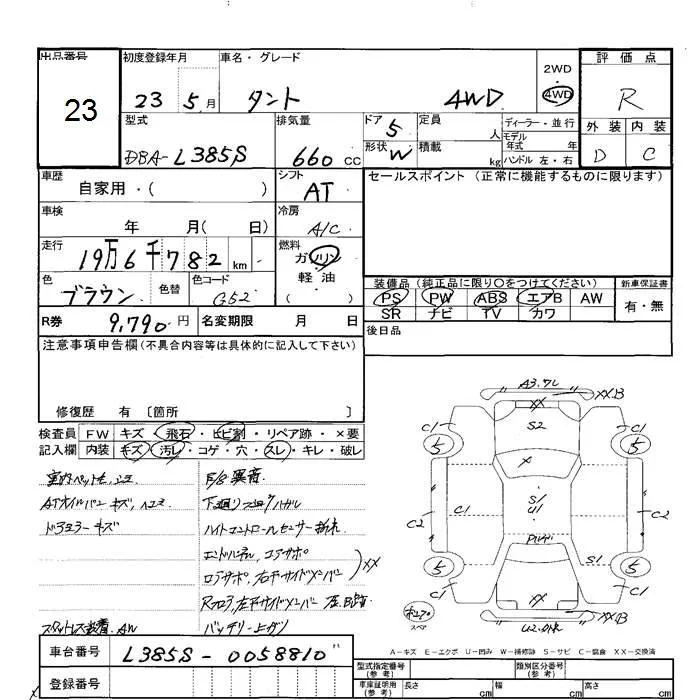 出品番号 初度登録年月 車名・グレード 2WD 評価点
23 23 5月 タント 4WD 4WD R
型式 排気量 ドア 5 定員 人 ディーラー・並行 外装 内装
DBA-L385S 660cc 形状 W 積載 kg モデル年式 年 ハンドル 左・右 D C
車歴 自家用・( ) シフト AT セールスポイント (正常に機能するものに限ります)
車検 年 月( 日) 冷房 A/C
走行 19万6千782km 燃料 ガソリン 軽油 ( )
色 ブラウン 色替 色コード G52
装備品 (純正品に限り○をつけてください) 新車保証書
PS PW ABS エアB AW 有・無
SR ナビ TV カワ
R券 9,790円 名変期限 月 日 後日品
注意事項申告欄(不具合内容等は具体的に記入して下さい)
修復歴 有 〔箇所 〕
検査員 FW キズ・飛石・ヒビ割・リペア跡・×要
記入欄 内装 キズ・汚レ・コゲ・穴・スレ・キレ・破レ
F/S 異音
ATオイルパン キズ、ヘコミ
ドアミラーキズ
ハイトコントロールセンサー折れ
コアサポ XX
コアサポ、右Fサイドメンバー
Rフロア、左Fサイドメンバー
スタットレス装着 AW バッテリー上がり
A3.フレ
XX XXB
C1 S2 C1
5 X 5
C2 C1 S1 U1 C2
S1
5 5
C1 XX C1
スペア XXB
A-キズ E-エクボ U-凹み W-補修跡 S-サビ C-腐食 XX-交換済
車台番号 L385S-0058810
登録番号
型式指定番号(参考) 類別区分番号(参考)
車庫証明用(参考) 長さ cm 幅 cm 高さ cm